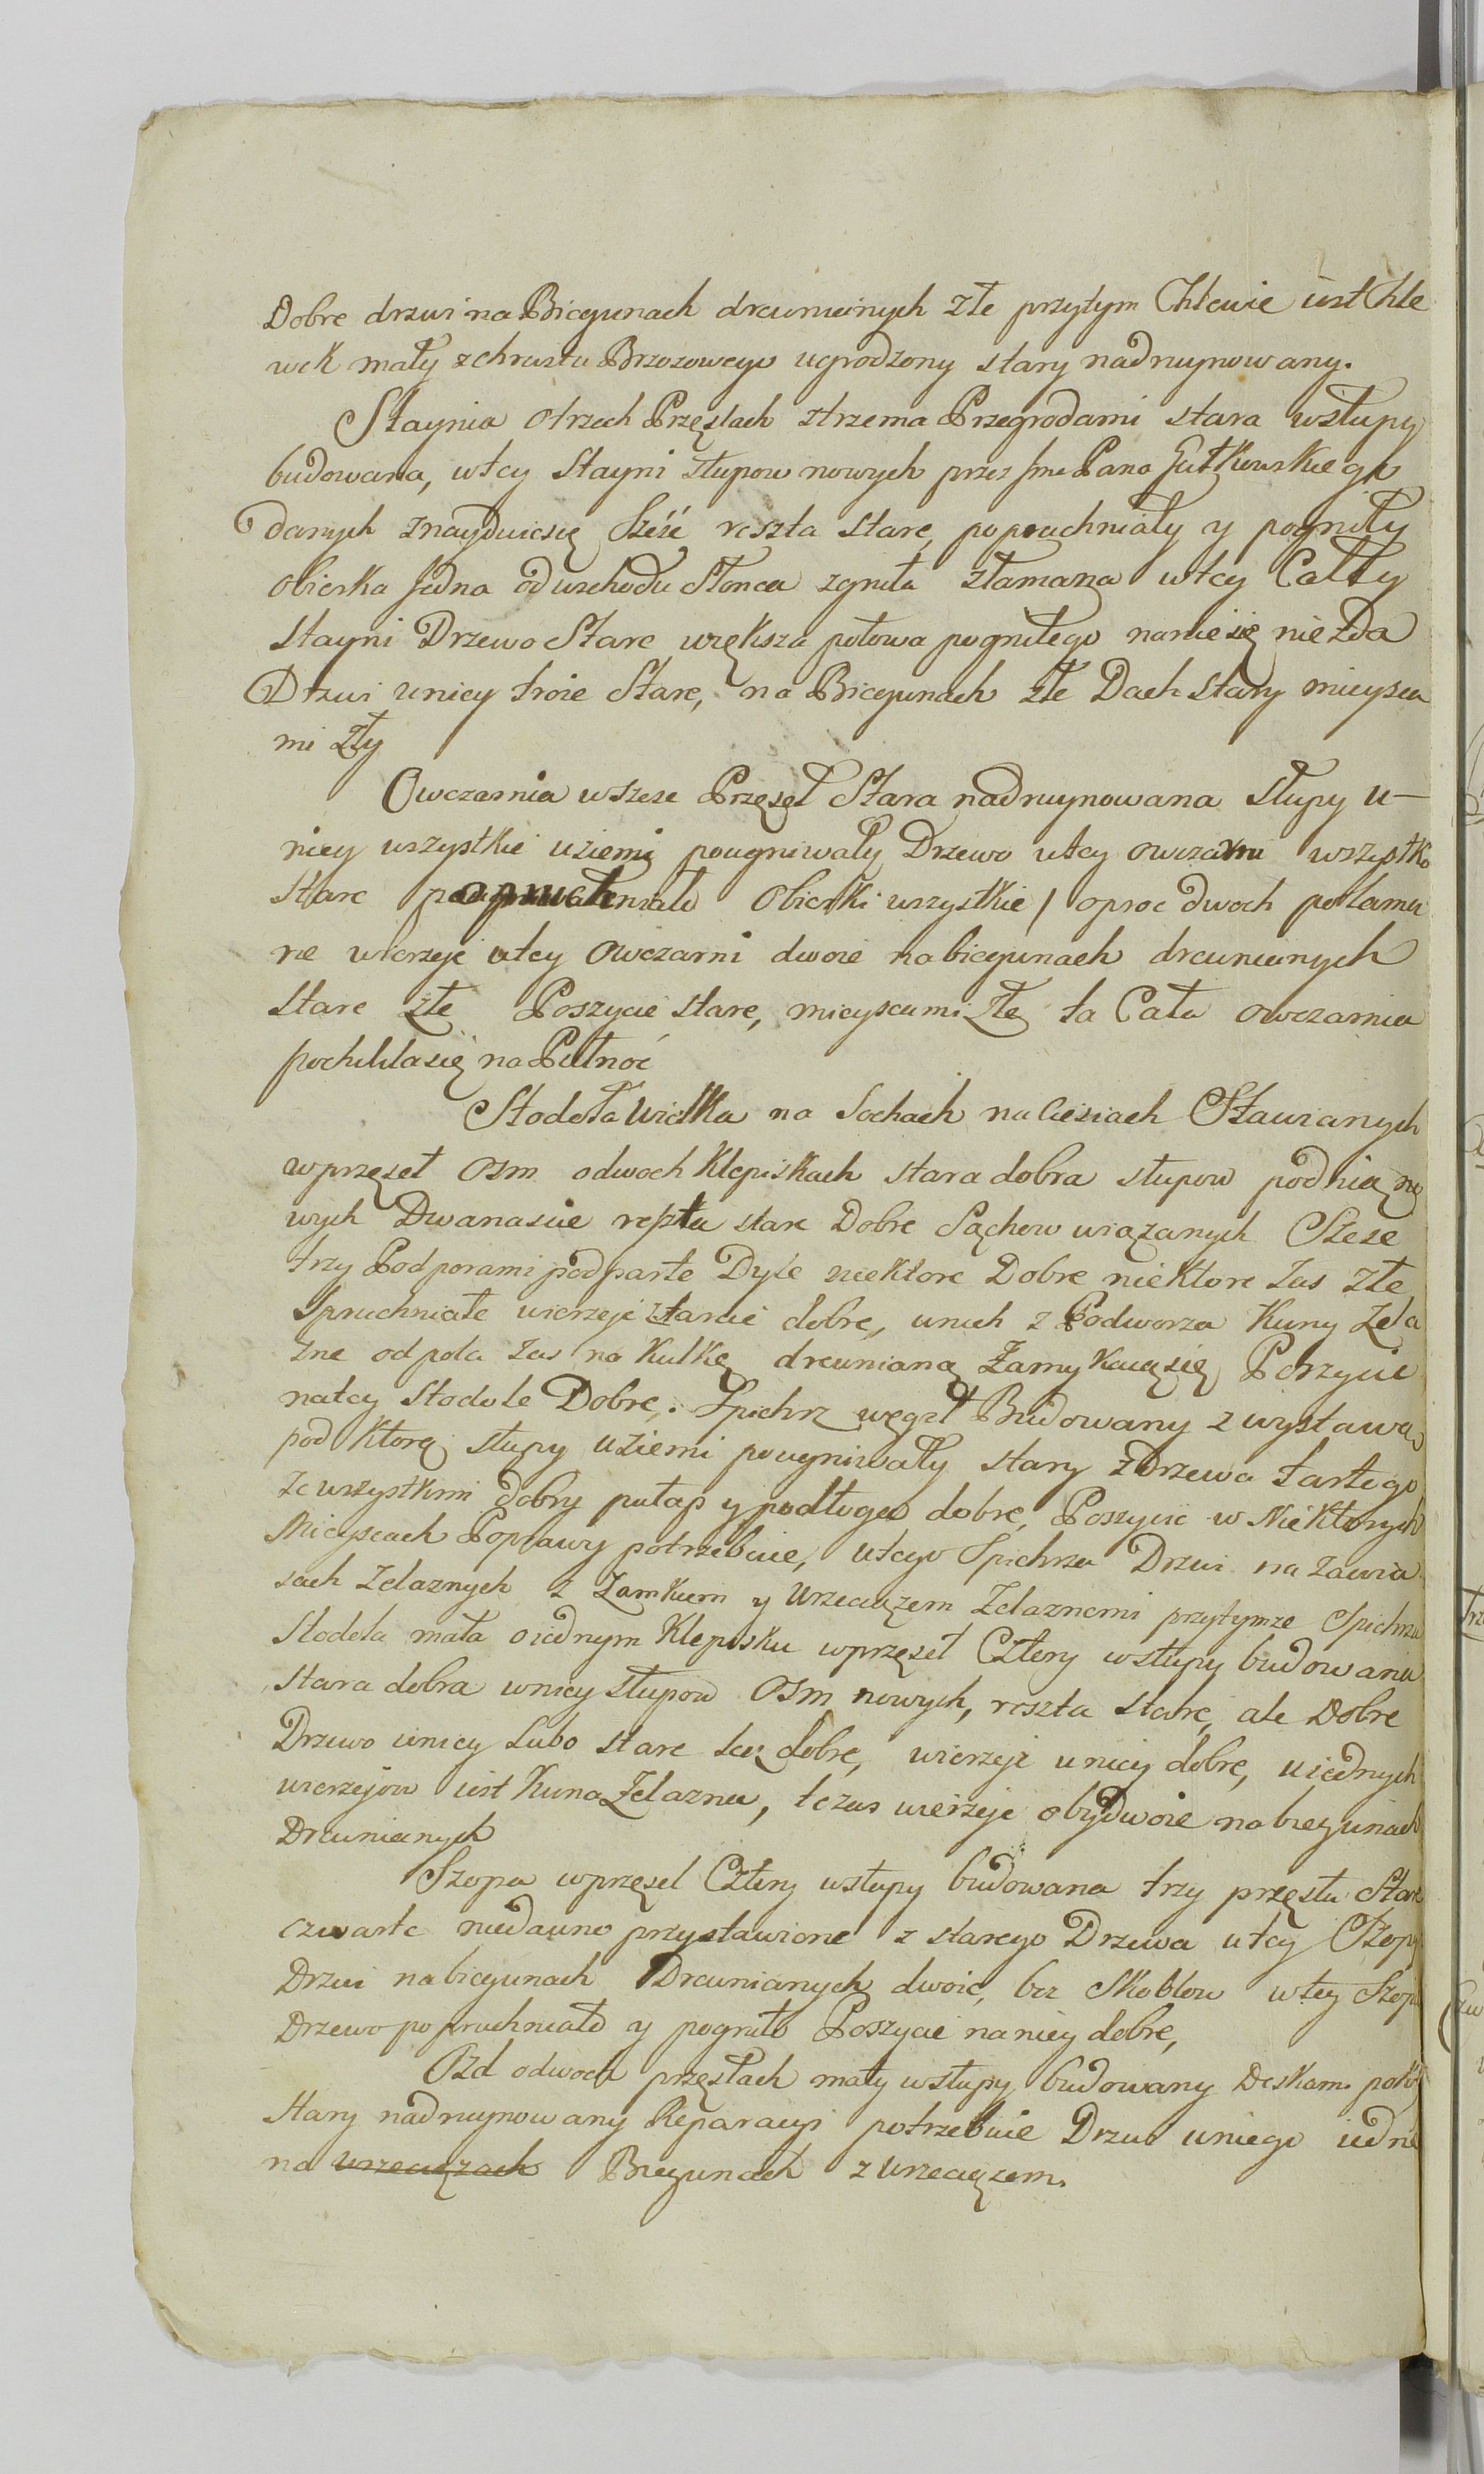 Dobre drzwi na Biegunach drewnianych złe przytym Chlewie iest Chle
wek mały z chrustu Brzozowego ugrodzony stary nadruynowany.
Staynia o trzech Przęsłach z trzema Przegrodami stara w słupy
budowana, w tey stayni słupow nowych przez Jme Pana Gutkowskiego
danych znayduie się sześć reszta stare, popruchniały y pogniły
obierka Jedna od wschodu Słonca zgniła złamana w tey Całey
stayni Drzewo Stare większa połowa pogniłego na nic się nie zda
Drzwi w niey troie Stare, na Biegunach złe Dach Stary mieysca
mi zły
Owczarnia w szesc Przęseł Stara nadruynowana słupy w
niey wszystkie w ziemi powgniwały Drzewo w tey owczarni wszystko
stare popruchniało Obierki wszystkie / oproc dwoch połama
ne wierzeje w tey Owczarni dwoie na biegunach drewnianych
stare złe Poszycie stare, mieyscami złe ta Cała owczarnia
pochyliła się na Pułnoć
Stodoła Wielka na Sochach na Ciesiach Stawianych
w przęseł Osm o dwoch Klepiskach stara dobra słupow pod nią no
wych Dwanascie reszta stare Dobre Sochow wiązanych Szesc
trzy Podporami podparte Dyle niektore Dobre niektore zas złe
Spruchniałe wierzeje stare dobre, w nich z Podworza Kuny Zela
zne od pola zas na Kulkę drewnianą Zamykaią się Poszycie
na tey stodole Dobre. Spichrz w węgieł Budowany z wystawą
pod ktorą słupy w ziemi powgniwały stary z Drzewa tartego
ze wszystkim dobry pułap y podłoga dobre, Poszycie w Niektorych
Mieyscach Poprawy potrzebuie, w tego Spichrza Drzwi na zawia
sach Zelaznych z Zamkiem y Wrzeciązem Zelaznemi przytymze Spichrzu
Stodoła mała o iednym Klepisku w przęseł Cztery w słupy budowana
stara dobra w niey słupow Osm nowych, reszta stare, ale Dobre
Drzewo w niey Lubo stare lecz dobre, wierzeje w niey dobre, u iednych
wierzejow iest Kuna Zelazna, te zas wierzeje obydwoie na biegunach
Drewnianych
Szopa w przęsel Cztery w słupy budowana trzy przęsła Stare
czwarte niedawno przystawione z starego Drzewa w tey Szopy
Drzwi na biegunach Drewnianych dwoie, bez Skoblow w tey Szopie
Drzewo popruchniało y pogniło Poszycie na niey dobre,
Ozd o dwoch przęsłach mały w słupy budowany Deskami
stary nadruynowany Reparacyi potrzebuie Drzwi u niego iedne
na wrzeciązach Biegunach z wrzeciązem.